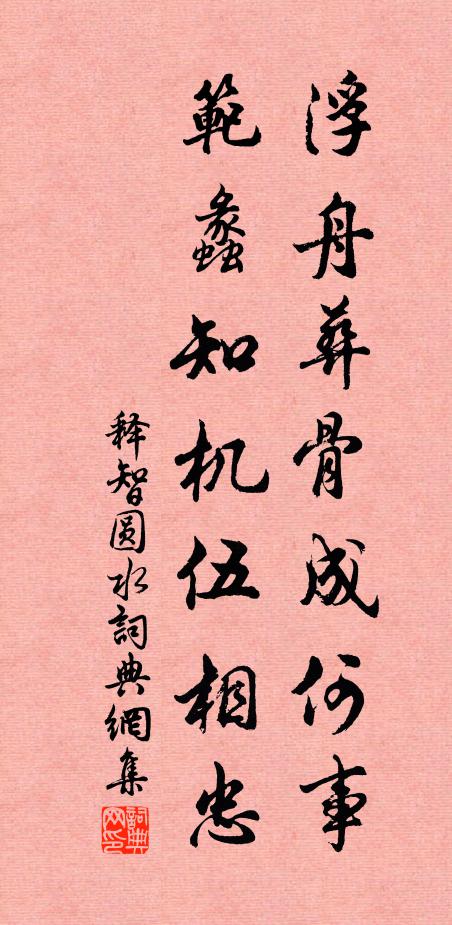 浮舟葬骨成何事
範蠡知机伍相忠
释智圆水詞典網集
詞典网印